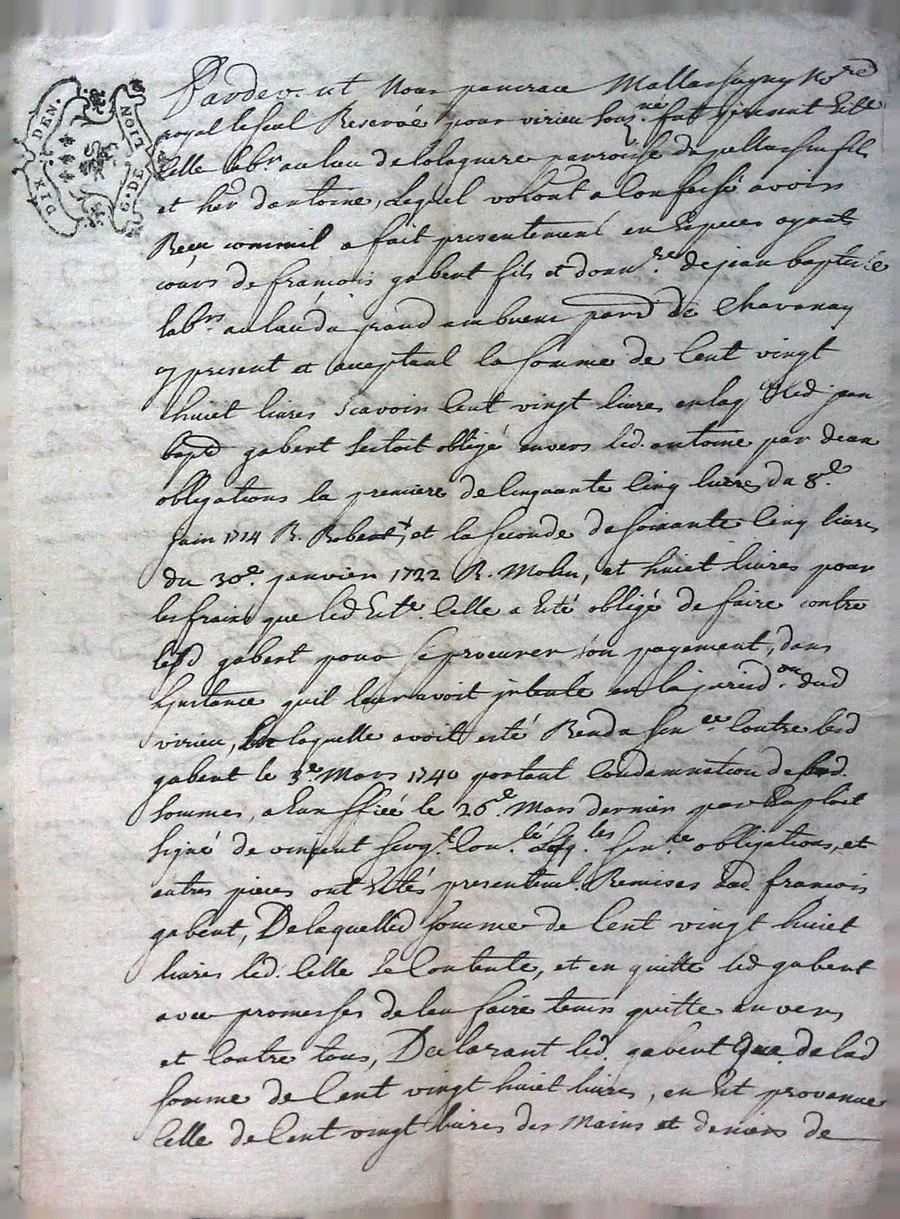 DIX DEN.
G. DE NOIT
Pardevant Nous pancrace Mallassagny No.re
royal le seul Reservé pour virieu sous.né fut present Est.e
Celle lab.r au lieu de paroisse de pellussin fils
et her d'antoine, Lequel volont a Confessé avoir
Reçu comme il a fait presentement en Especes ayant
cours de francois gabent fils et donn.re de jean baptiste
lab.r au lieu du grand embuent parr.e de Chavanay
y present et acceptant la somme de Cent vingt
huict livres scavoir Cent vingt livres en laq.le led jean
bap.t gabent s'estoit obligé envers led. antoine par deux
obligations la premiere de Cinquante Cinq livres du 8.e
juin 1714 R. Robert, et la seconde de soixante Cinq livres
du 30.e janvier 1722 R. Molin, et huict livres pour
les fraix que led Est.e Celle a Eté obligé de faire contre
led gabent pour se procurer son payement, dans
L'instance quil leur avoit intenté en la jurisd.on dud
virieu, laquelle avoit esté Rendu sen.ce Contre led
gabent le 3.e Mars 1740 portant Condamnation desd.
sommes, a lui siffiée le 26.e Mars dernier par Exploit
signé de vincent serg.t Con.lé Lesq.les sen.ce obligations, et
autres pieces ont Eté presentem.t Remises aud. francois
gabent, De laquelled somme de Cent vingt huict
livres led. Celle se Contente, et en quitte led gabent
avec promesses de l'en faire tenir quitte envers
et Contre tous, Declarant led. gabent que de lad
somme de Cent vingt huict livres, en Est provenue
Celle de Cent vingt livres des Mains et deniers de